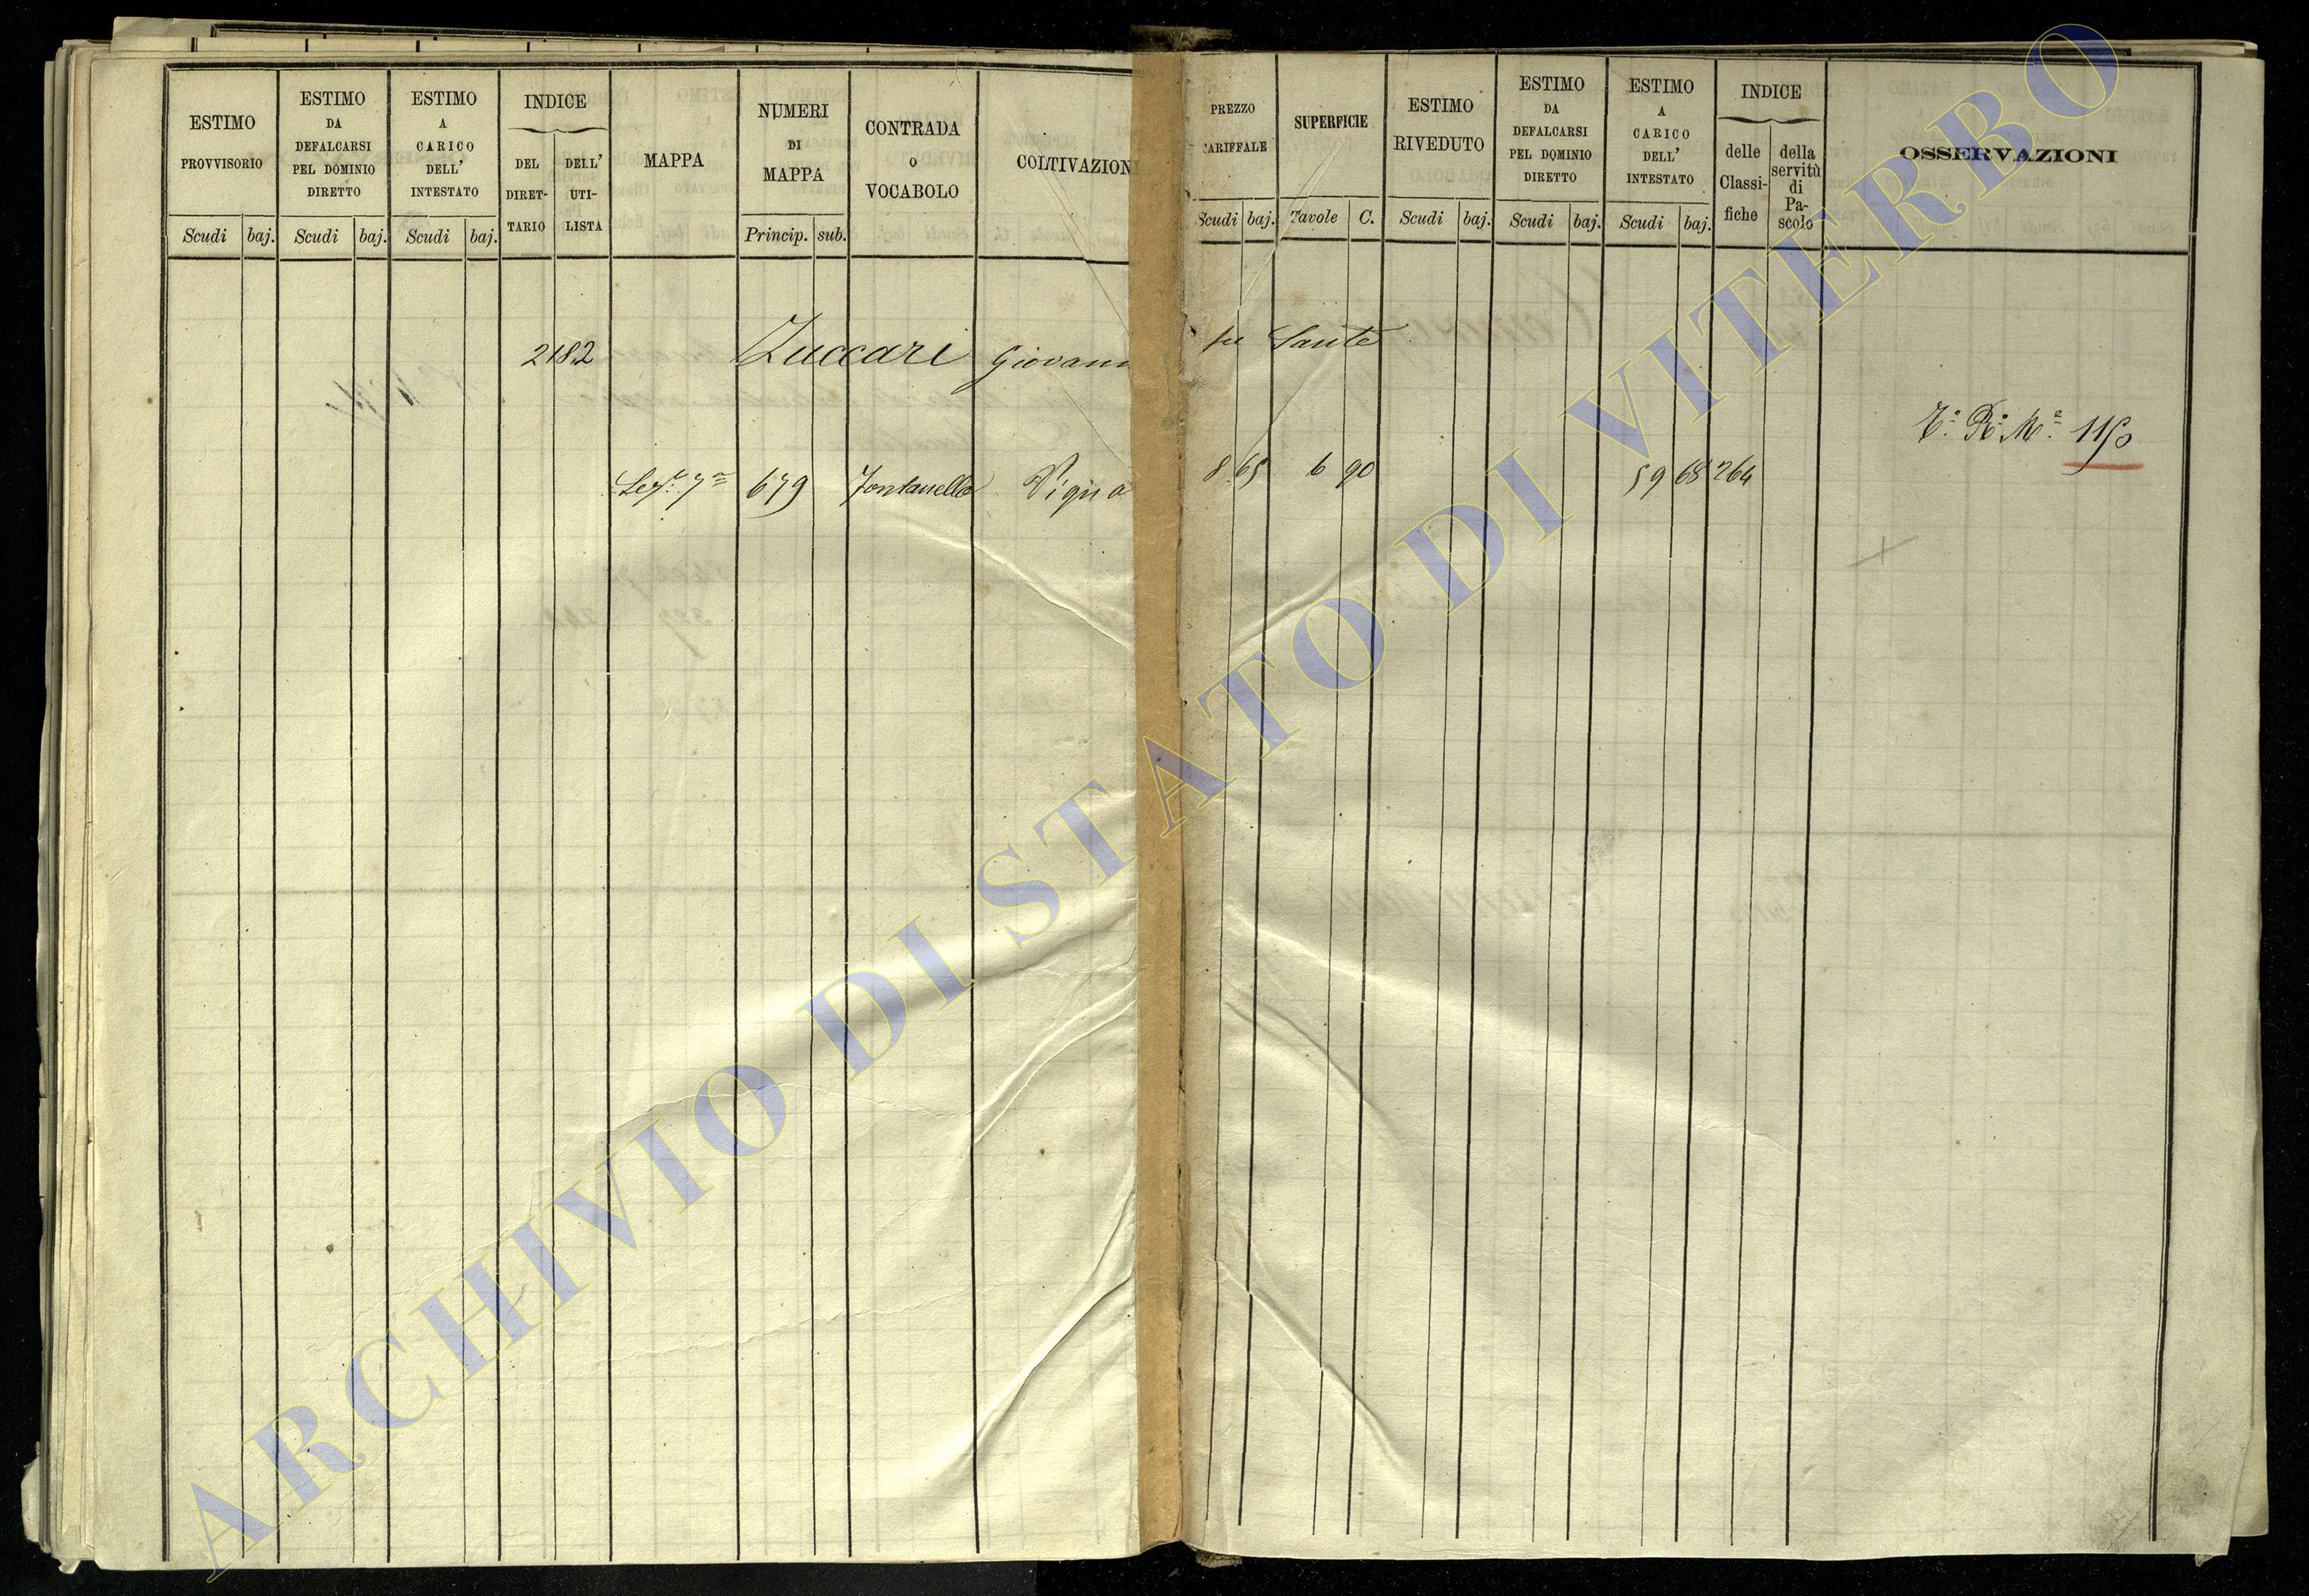 ESTIMO PROVVISORIO
Scudi baj.
ESTIMO DA DEFALCARSI PEL DOMINIO DIRETTO
Scudi baj.
ESTIMO A CARICO DELL' INTESTATO
Scudi baj.
INDICE
DEL DIRET- TARIO
DELL' UTI- LISTA
MAPPA
NUMERI DI MAPPA
Princip. sub.
CONTRADA O VOCABOLO
COLTIVAZION
PREZZO TARIFFALE
Scudi baj.
SUPERFICIE
Tavole C.
ESTIMO RIVEDUTO
Scudi baj.
ESTIMO DA DEFALCARSI PEL DOMINIO DIRETTO
Scudi baj.
ESTIMO A CARICO DELL' INTESTATO
Scudi baj.
INDICE
delle Classi- fiche
della servitù di Pa- scolo
OSSERVAZIONI
2182 Zuccari Giovanni fu Sante
679 Fontanella Vigna 8 65 6 90 59 68 264
ARCHIVIO DI STATO DI VITERBO